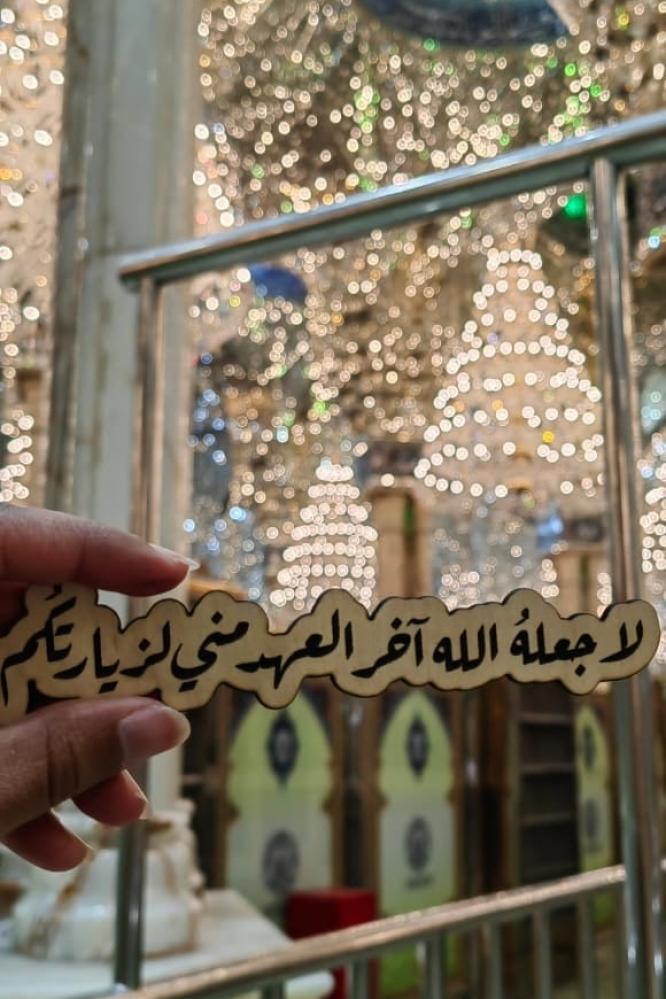 لا جعلهُ الله آخر العهد مني لزيارتكُم